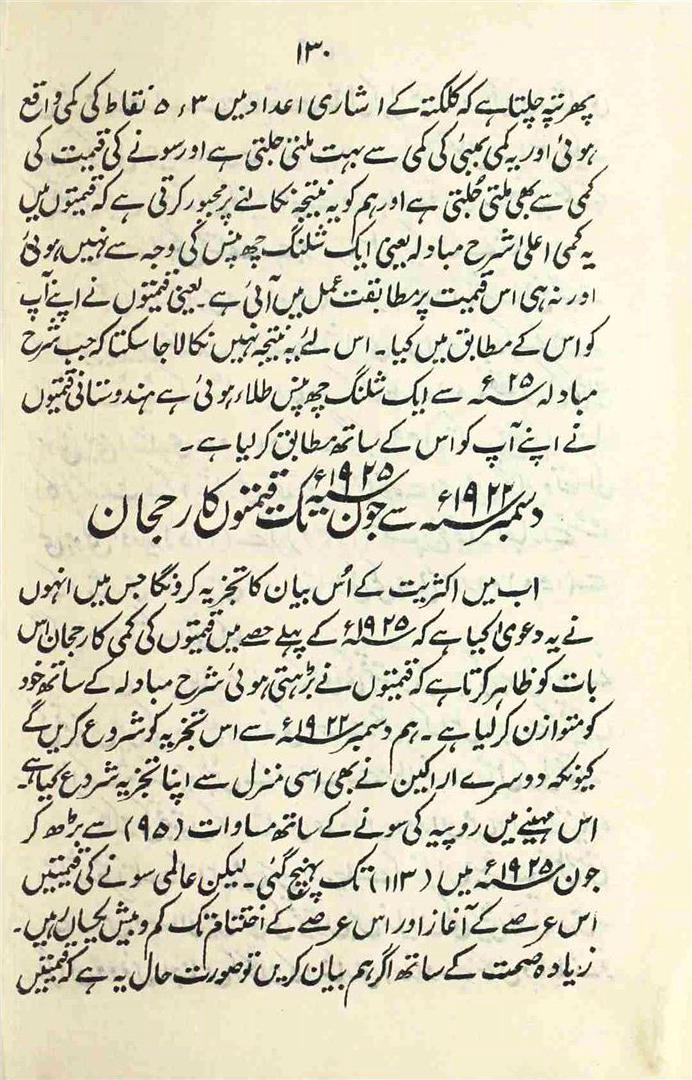 ۱۳۰
پھر پتہ چلتا ہے کہ کلکتہ کے اشاری اعداد میں ۳ء۵ نقاط کی کمی واقع
ہوئی اور یہ کمی بمبئی کی کمی سے بہت ملتی جلتی ہے اور سونے کی قیمت کی
کمی سے بھی ملتی جلتی ہے اور ہم کو یہ نتیجہ نکالنے پر مجبور کرتی ہے کہ قیمتوں میں
یہ کمی اعلیٰ شرح مبادلہ یعنی ایک شلنگ چھ پنس کی وجہ سے نہیں ہوئی
اور نہ ہی اس قیمت پر مطابقت عمل میں آئی ہے۔ یعنی قیمتوں نے اپنے آپ
کو اس کے مطابق میں کیا۔ اس لئے یہ نتیجہ نہیں نکالا جا سکتا کہ جب شرح
مبادلہ ۲۵ء سے ایک شلنگ چھ پنس طلاء ہوئی ہے ہندوستانی قیمتوں
نے اپنے آپ کو اس کے ساتھ مطابق کر لیا ہے۔
دسمبر ۱۹۲۲ء سے جون ۱۹۲۵ء تک قیمتوں کا رحجان
اب میں اکثریت کے اُس بیان کا تجزیہ کروں گا جس میں انہوں
نے یہ دعویٰ کیا ہے کہ ۱۹۲۵ء کے پہلے حصے میں قیمتوں کی کمی کا رحجان اس
بات کو ظاہر کرتا ہے کہ قیمتوں نے بڑھتی ہوئی شرح مبادلہ کے ساتھ خود
کو متوازن کر لیا ہے۔ ہم دسمبر ۱۹۲۲ء سے اس تجزیہ کو شروع کریں گے
کیونکہ دوسرے اراکین نے بھی اسی منزل سے اپنا تجزیہ شروع کیا ہے۔
اس مہینے میں روپیہ کی سونے کے ساتھ مساوات (۹۵) سے بڑھ کر
جون ۱۹۲۵ء میں (۱۱۳) تک پہنچ گئی۔ لیکن عالمی سونے کی قیمتیں
اس عرصے کے آغاز اور اس عرصے کے اختتام تک کم و بیش یکساں ہیں۔
زیادہ صحت کے ساتھ اگر ہم بیان کریں تو صورت حال یہ ہے کہ قیمتیں